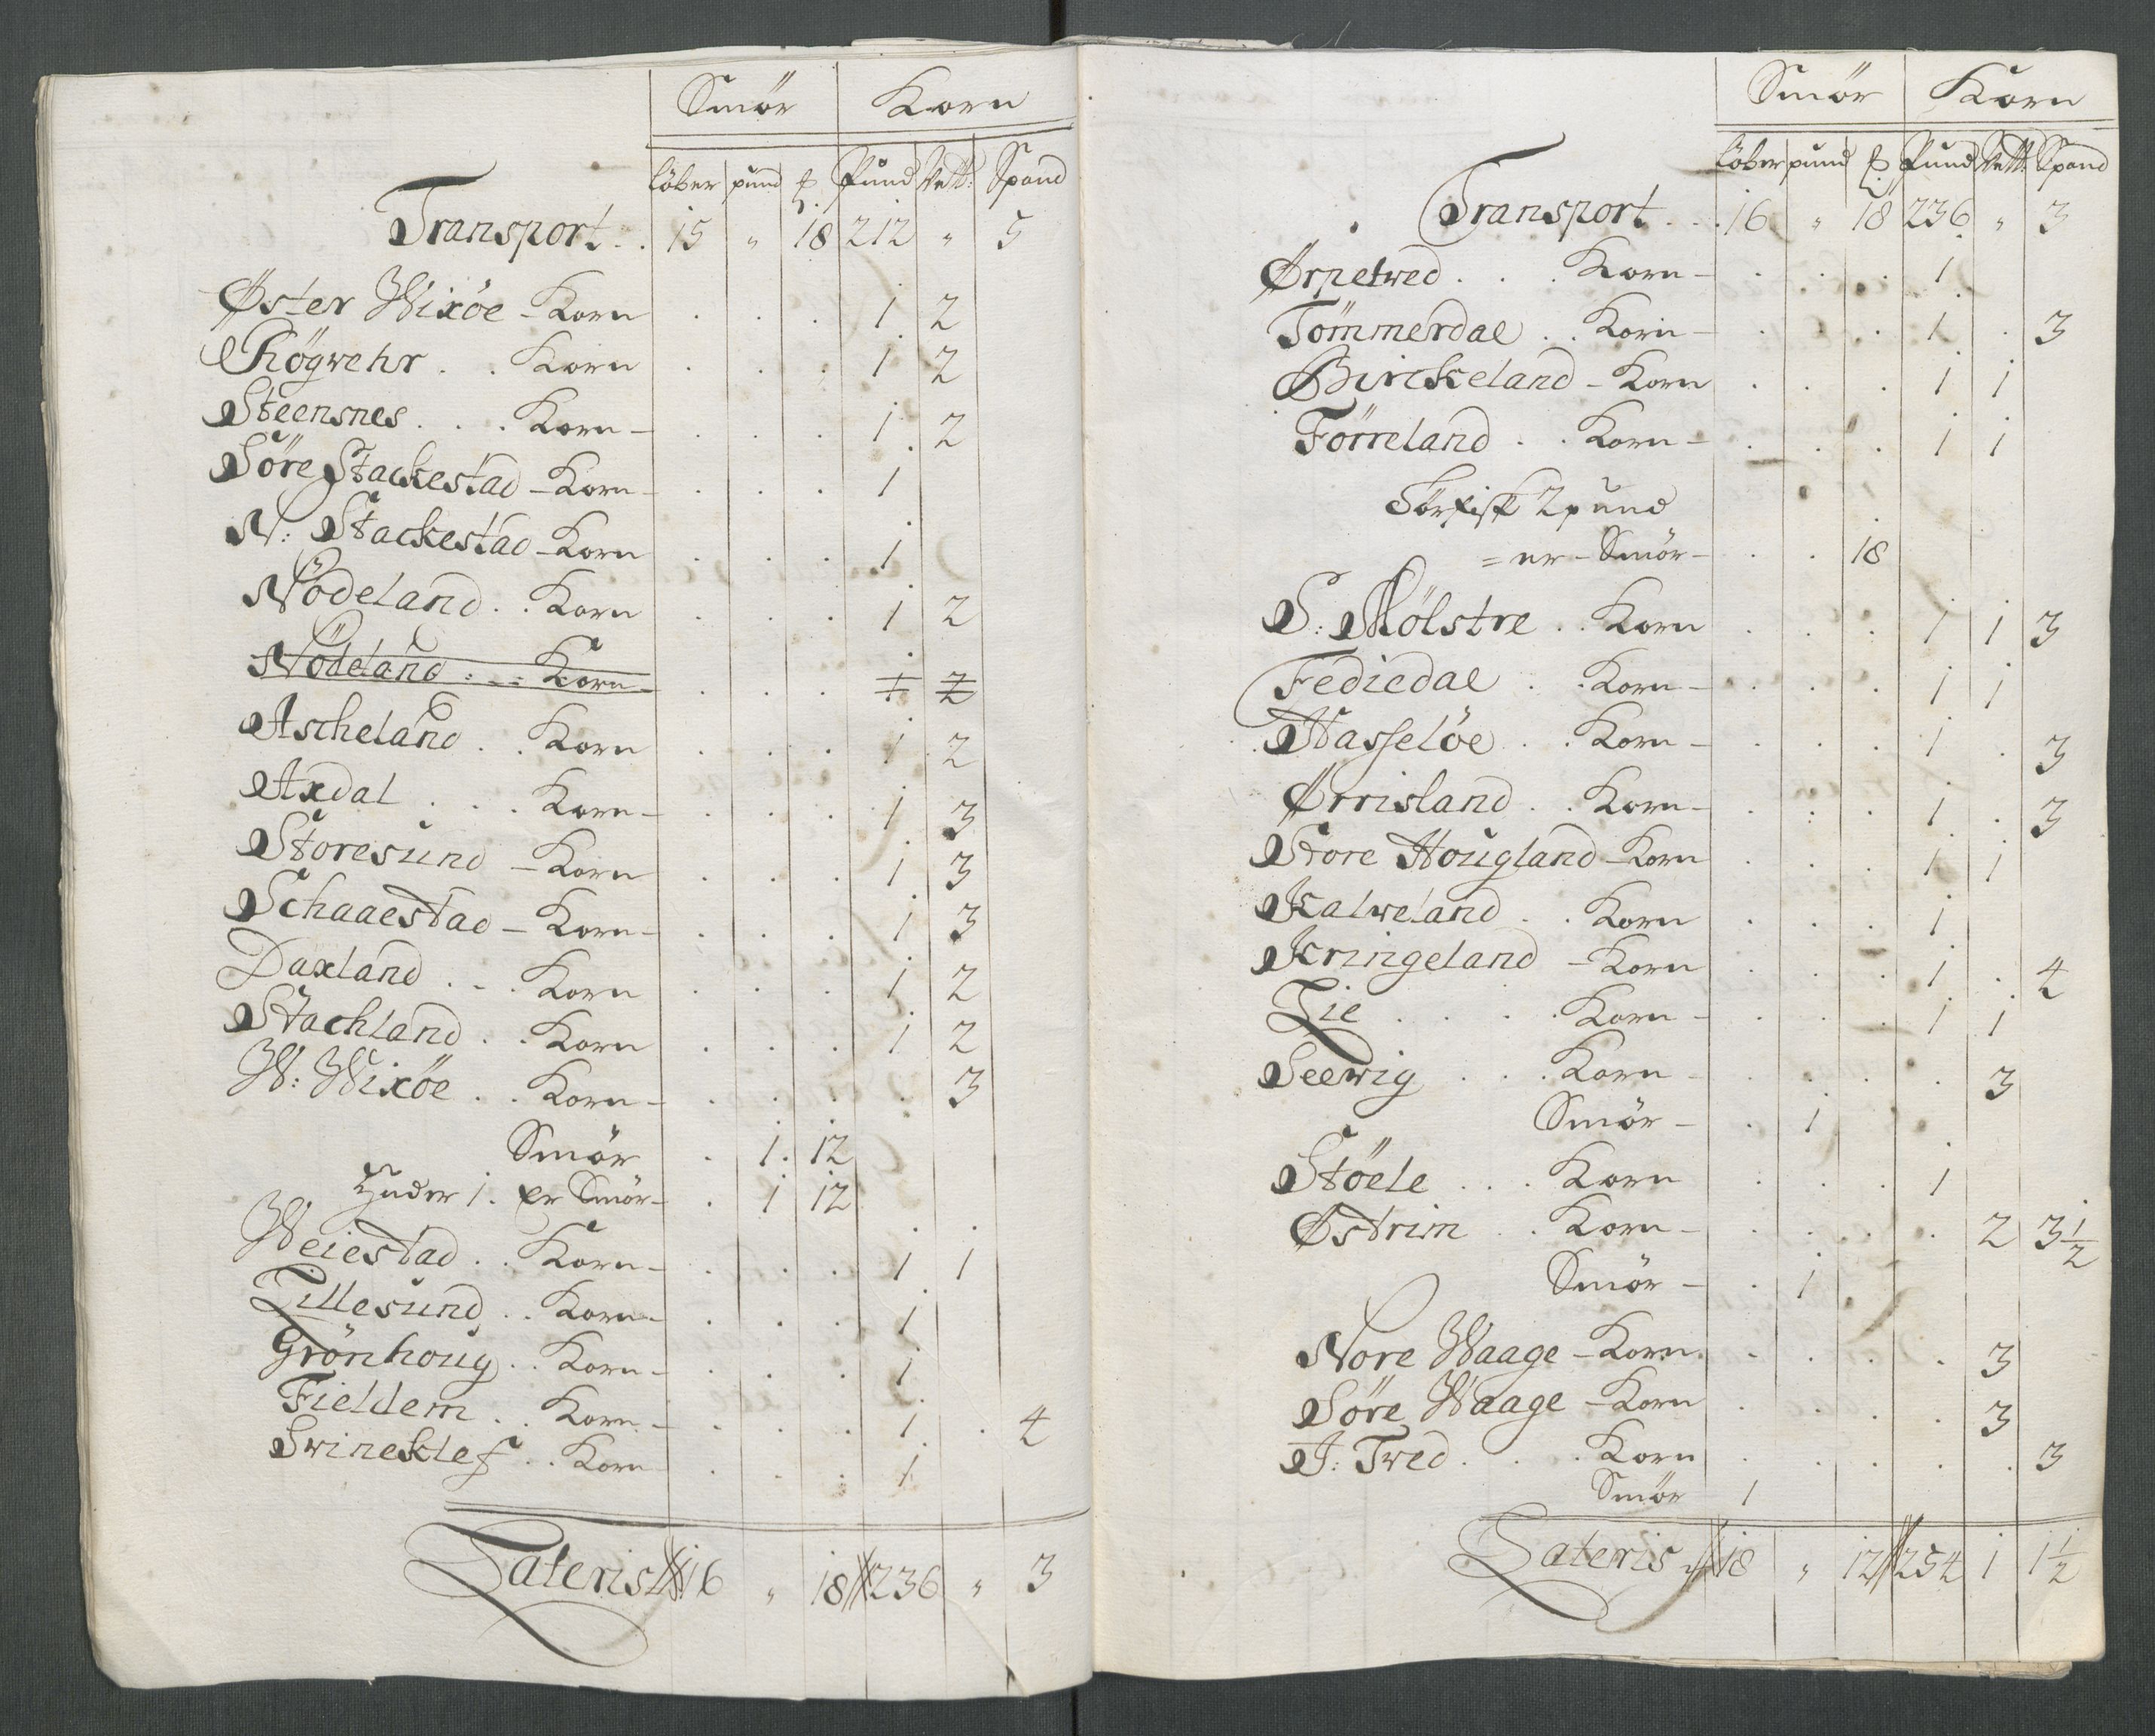 Smör Korn
löber pund ℔. Pund Vett: Spand
Transport . . 15 " 18 212 " 5
Øster Wixöe - Korn . . . 1 2
Rögwehr . . Korn . . . 1 2
Steensnes . . . Korn - . . . 1 2
Söre Stackestad - Korn - . . . 1
N: Stackestad - Korn . . . 1
Nödeland . . Korn . . . 1 2
Nödeland . . . Korn - . . . 1 2
Ascheland . . Korn . . . 1 2
Axdal . . . Korn - . . . 1 3
Storesund - Korn . . . 1 3
Schaaestad - Korn - . . . 1 3
Daxland . . . Korn . . . 1 2
Stachland . . Korn . . . 1 2
W: Wixöe . . Korn - . . . . 3
Smör . 1 . 12
Huder 1. er Smör - . 1 12
Weiestad . . Korn - . . . 1 1
Lillesund . . Korn - . . . 1
Grönhoug . . Korn - . . . 1
Fieldem . . Korn - . . . 1 . 4
Swineklef . . Korn . . . 1
Lateris 16 " 18 236 " 3
Smör Korn
löber pund ℔ Pund Vett: Spand
Transport . . . 16 " 18 236 " 3
Ørpetwed . . . Korn - . . . 1
Tömmerdal . . Korn - . . . 1 . 3
Birckeland - Korn . . . 1 1
Förreland . . Korn - . . . 1 1
Törfisk 2 pund
= er - Smör - . . 18
S: Mölstre . . Korn . . . 1 1 3
Fediedal . . Korn - . . . 1 1
Hasselöe . . Korn - . . . 1 . 3
Ørrisland . . Korn - . . . 1 . 3
Store Hougland - Korn . . . 1 1
Kalweland . . Korn . . . 1
Kringeland - Korn . . . 1 . 4
Lie . . . . Korn - . . . 1 1
Seewig . . . Korn - . . . . 3
Smör - . 1
Stöele . . . Korn . . . 1
Østrim . . Korn - . . . . 2 3 1/2
Smör - . 1
Nore Waage - Korn . . . . 3
Söre Waage - Korn . . . . 3
J: Twed . . . Korn . . . . . 3
Smör 1
Lateris 18 " 12 254 1 1 1/2